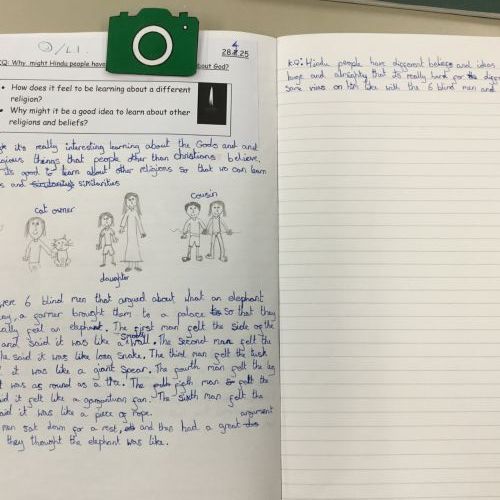 28.4.25
KQ: Why might Hindu people have about God?
How does it feel to be learning about a different
religion?
Why might it be a good idea to learn about other
religions and beliefs?
it's really interesting learning about the Gods and and
things that people other than christians believe.
Its good to learn about other religions so that we can learn
and similarities
cat owner
cousin
daughter
were 6 blind men that argued about what an elephant
a farmer brought them to a palace so that they
feel an elephant. The first man felt the side of the
and said it was like a wall. The second man felt the
he said it was like long snake. The third man felt the tusk
it was like a giant spear. The fourth man felt the leg
it was as round as a tree. The fifth man felt the
it felt like a gargantuan fan. The sixth man felt the
said it was like a piece of rope.
men sat down for a rest, and then had a great argument
they thought the elephant was like.
KQ: Hindu people have different beliefs and ideas
huge and almighty that its really hard for
same view on him like with the 6 blind men and